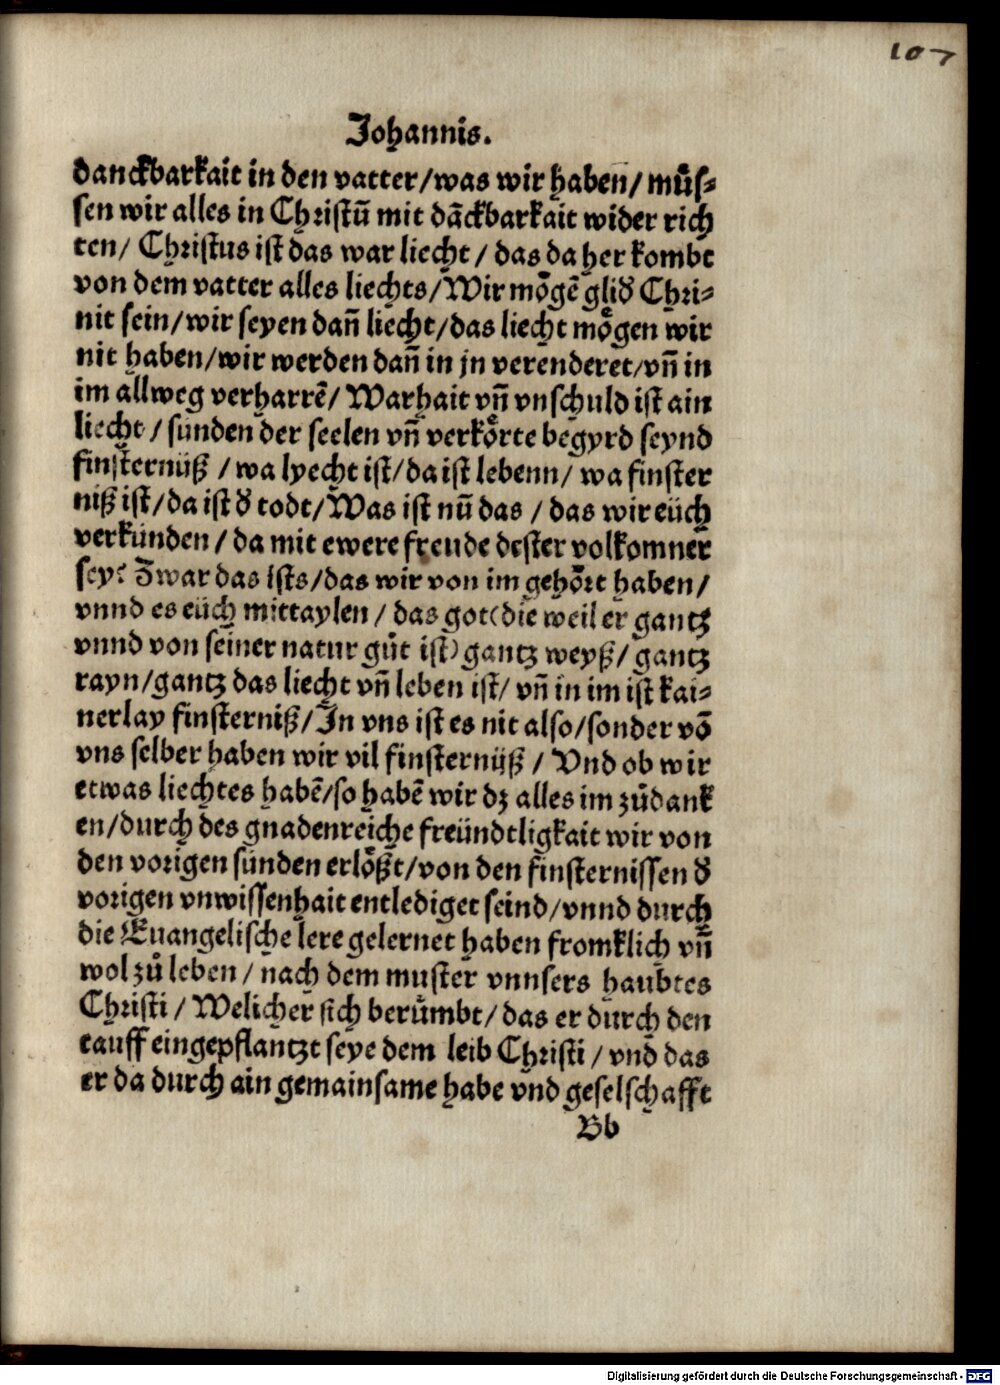 107
Johannis.
danckbarkait in den vatter/was wir haben/ muͤſ⸗
ſen wir alles in Chriſtū mit dāckbarkait wider rich
ten/ Chriſtus iſt das war liecht / das da her kombt
von dem vatter alles liechts/Wir moͤgē glið Chri⸗
nit ſein/wir ſeyen dañ liecht/das liecht moͤgen wir
nit haben/wir werden dañ in jn verenderet/vñ in
im allweg verharrē/ Warhait vñ vnſchuld iſt ain
liecht / ſünden der ſeelen vñ verkoͤrte begyrd ſeynd
finſternüß /wa lyecht iſt/da iſt lebenn/ wa finſter
niß iſt/da iſt ð todt/Was iſt nū das / das wir eüch
verkünden / da mit ewere freude deſter volkomner
ſey? Zwar das iſts/das wir von im gehoͤrt haben/
vnnd es eüch mittaylen / das got(die weil er gantz
vnnd von ſeiner natur guͤt iſt)gantz weyß/ gantz
rayn/gantz das liecht vñ leben iſt/ vñ in im iſt kai⸗
nerlay finſterniß/In vns iſt es nit alſo/ſonder vō
vns ſelber haben wir vil finſternüß / Vnd ob wir
etwas liechtes habē/ſo habē wir dz alles im zůdank
en/durch des gnadenreiche freündtligkait wir von
den vorigen ſünden erloͤßt/von den finſterniſſen ð
vorigen vnwiſſenhait entlediget ſeind/vnnd durch
die Euangeliſche lere gelernet haben fromklich vñ
wol zů leben / nach dem muſter vnnſers haubtes
Chriſti / Welicher ſich beruͤmbt/ das er durch den
tauff eingepflantzt ſeye dem leib Chriſti / vnd das
er da durch ain gemainſame habe vnd geſelſchafft
Bb
Digitalisierung gefördert durch die Deutsche Forschungsgemeinschaft - DFG